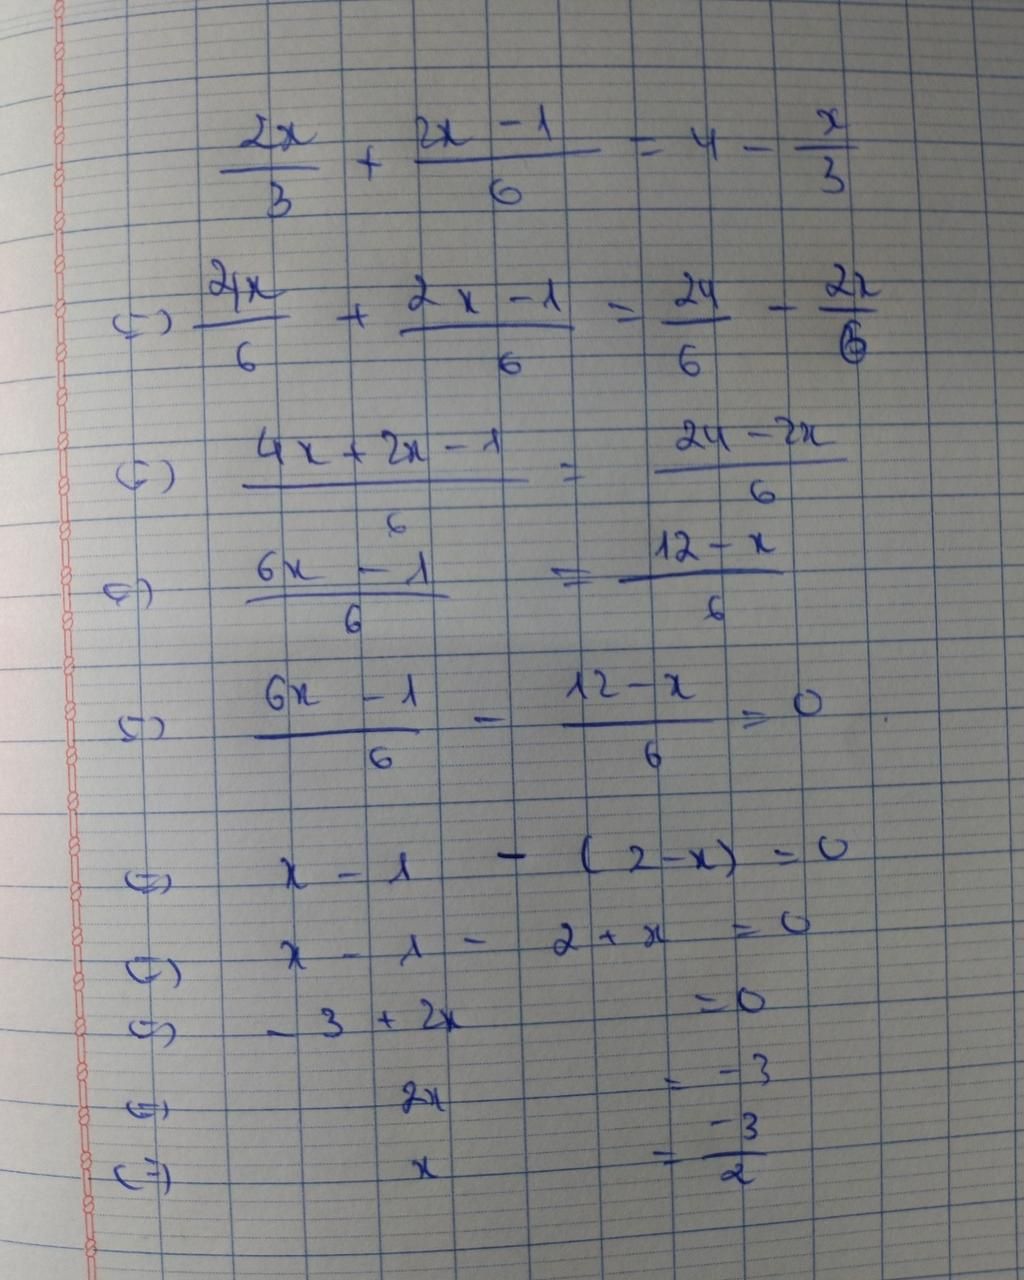 2x/3 + (2x - 1)/6 = 4 - x/3
(=) 4x/6 + (2x - 1)/6 = 24/6 - 2x/6
(=) (4x + 2x - 1)/6 = (24 - 2x)/6
(=) (6x - 1)/6 = (12 - x)/6
(=) (6x - 1)/6 - (12 - x)/6 = 0
(=) x - 1 - (2 - x) = 0
(=) x - 1 - 2 + x = 0
(=) - 3 + 2x = 0
(=) 2x = -3
(=) x = -3/2